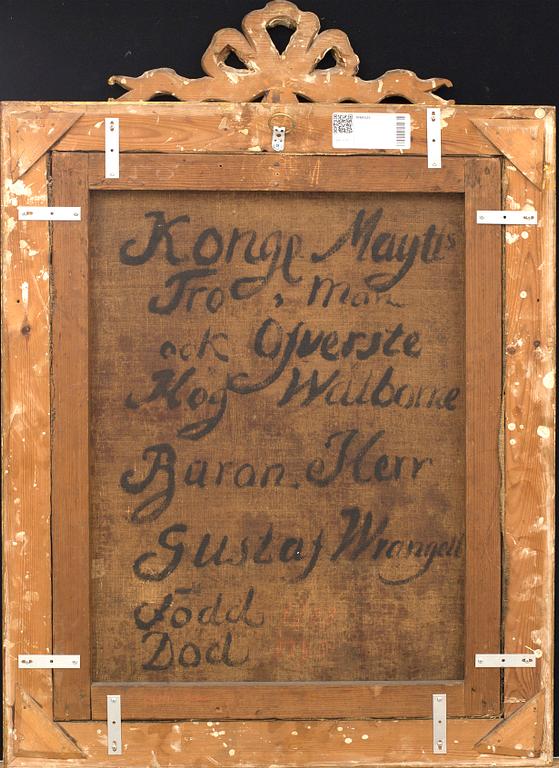 Konge Mayts
Tro, man
ock Ofverste
Hög Wälborne
Baron. Herr
Gustaf Wrangell
Född
Död